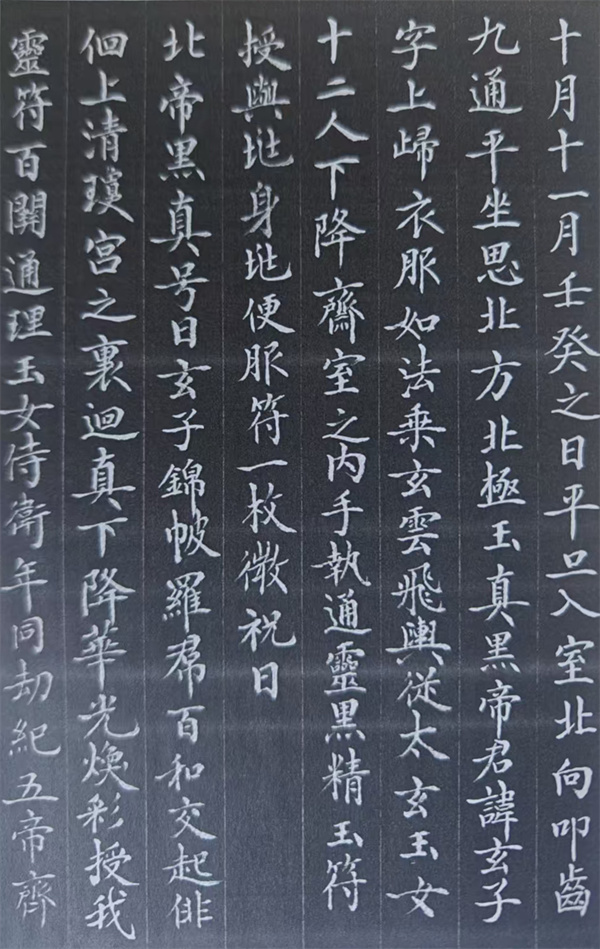 十月十一月壬癸之日平旦入室北向叩齒
九通平坐思北方北極玉真黑帝君諱玄子
字上歸衣服如法乗玄雲飛輿從太玄玉女
十二人下降齋室之内手執通靈黑精玉符
授與某身某便服符一枚微祝曰
北帝黑真号曰玄子錦帔羅帬百和交起俳
佪上清瓊宮之裏迴真下降華光煥彩授我
靈符百關通理玉女侍衛年同劫紀五帝齊